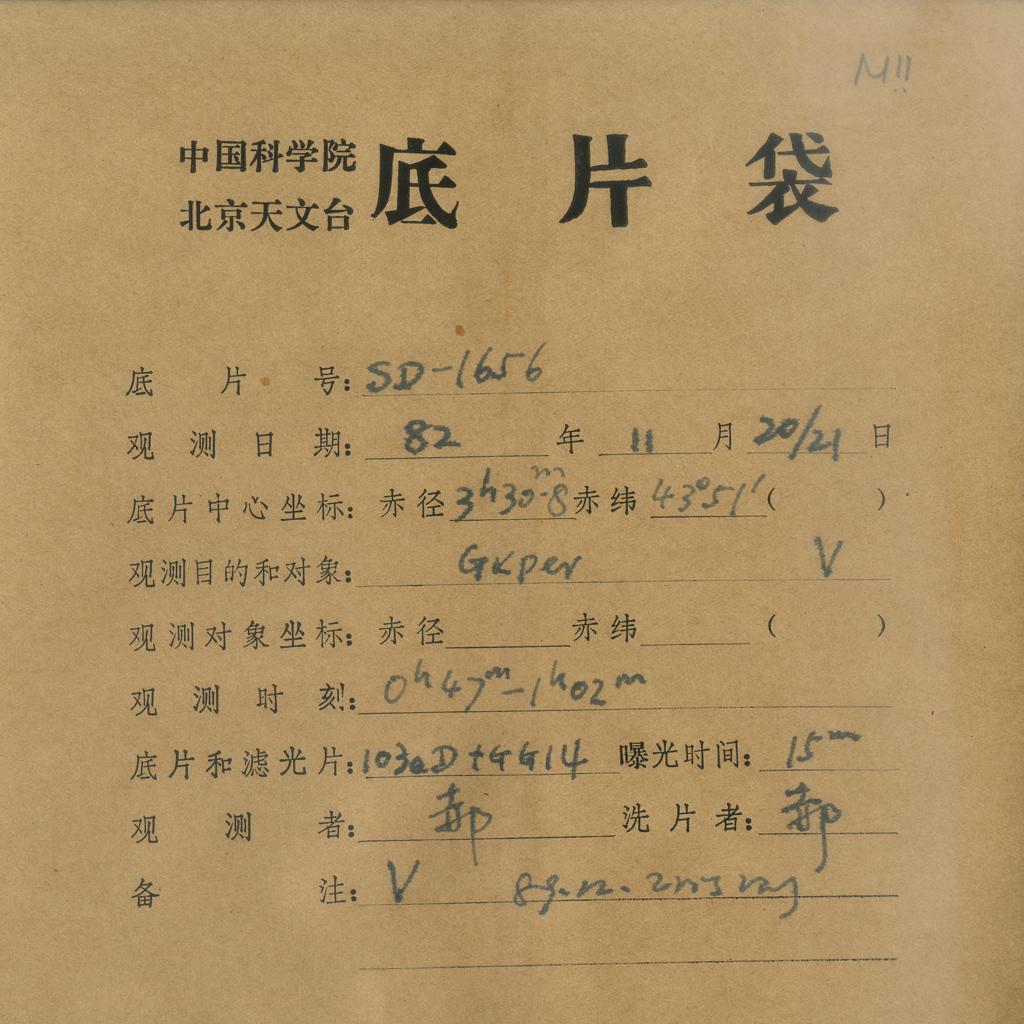 M!!
中国科学院
北京天文台
底片袋
底片号: SD-1656
观测日期: 82年11月20/21日
底片中心坐标: 赤径3h30m.8赤纬43°51′( )
观测目的和对象: GKper V
观测对象坐标: 赤径 赤纬 ( )
观测时刻: 0h47m-1h02m
底片和滤光片: 103aD+GG14 曝光时间: 15m
观测者: 郝 洗片者: 郝
备注: V